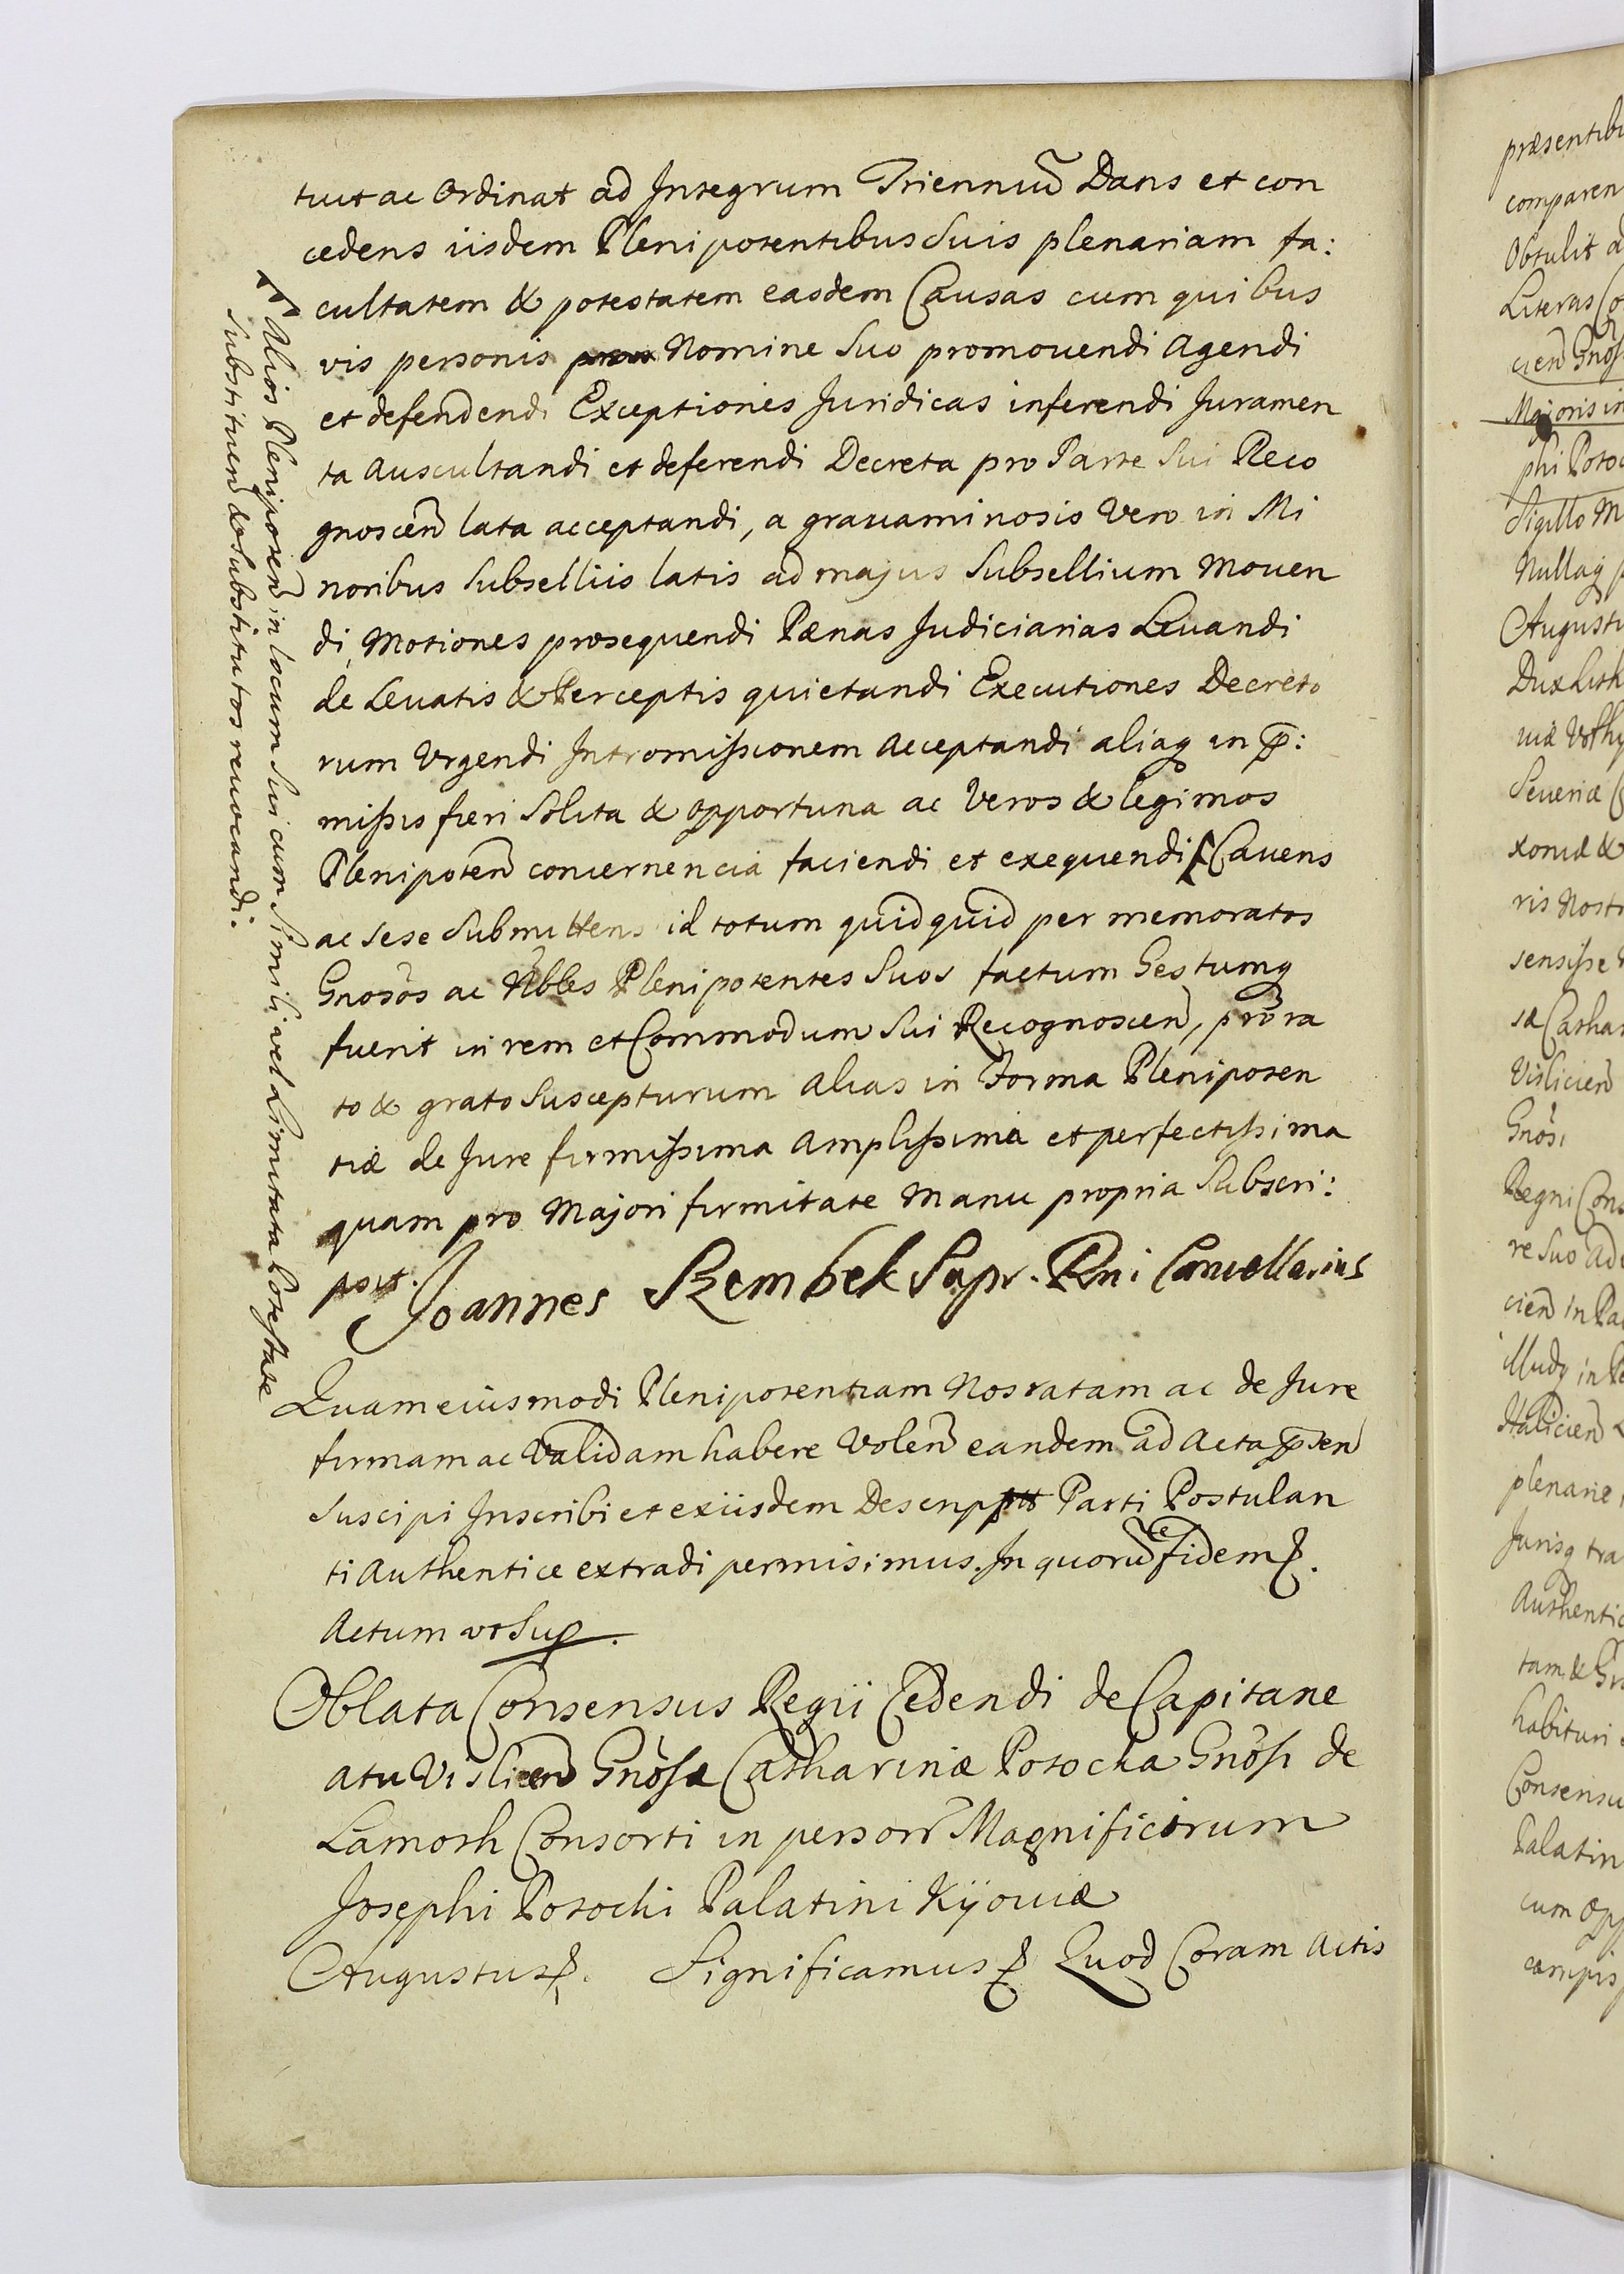 tuit ac Ordinat ad Integrum Trienniū Dans et con
cedens iisdem Plenipotentibus Suis plenariam fa:
cultatem & potestatem easdem Causas cum qui bus
vis personis Nomine Suo promouendi Agendi
et defendendi Exceptiones Juridicas inferendi Juramen
ta Auscultandi et deferendi Decreta pro Parte Sui Reco
gnoscen̄ lata acceptandi, a grauaminosis Vero in Mi
noribus Subselliis latis ad majus Subsellium Mouen
di, Motiones prosequendi Pænas Judiciarias Leuandi
de Leuatis & Perceptis quietandi Executiones Decreto
rum Vrgendi Intromissionem Acceptandi aliaq in p̄:
missis fieri Solita & opportuna ac Veros & legimos
Plenipoten̄ concernencia faciendi et exequendi Cauens
ac sese Submittens id totum quidquid per memoratos
Gnosōs ac Nōbles Plenipotentes Suos factum Gestumq
fuerit in rem et Commodum Sui Recognoscen̄, prō ra
to & grato Suscepturum Alias in Forma Plenipoten
tiæ de Jure firmissima Amplissima et perfectissima
quam pro Majori firmitate Manu propria Subscri:
psit. Joannes Szembek Supr. Rni Cancellarius
Alios Plenipoten̄ in locum Sui cum Simili vel Limitata Potestate
Substituen̄ & Substitutos reuocandi.
Quam eiusmodi Plenipotentiam Nos ratam ac de Jure
firmam ac Validam habere Volen̄ eandem ad Acta p̄sen̄
Suscipi Inscribi et ex iisdem Descriptt Parti Postulan
ti Authentice extradi permisimus. In quorū fidem &.
Actum vt Sup.
Oblata Consensus Regii Cedendi de Capitane
atu Vislicen̄ Gnōsæ Catharinæ Potocka Gnōsi de
Lamosk Consorti in person̄ Magnificorum
Josephi Potocki Palatini Kijouiæ
Augustus &. Significamus & Quod Coram Actis
præsentibu
comparen
Obtulit a
Literas Co
cien̄ Gnōs
Majoris in
phi Potoc
Sigillo M
Nullaq p
Augustu
Dux Lith
uiæ Volhy
Seueriæ
xoniæ &
ris Nostr
sensisse
sæ Cathar
Vislicien̄
Gnōsi
Regni Cons
re Suo ad
cien̄ in Pa
illudq in Pe
Halicien̄
plenarie
Jurisq tra
Authentic
tam & Gr
habituri
Consensu
Palatin
cum opp
campis